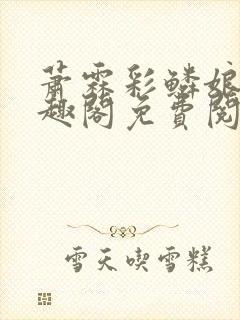 萧霖彩鳞娘
趣阁免费阅
雪天喫雪糕